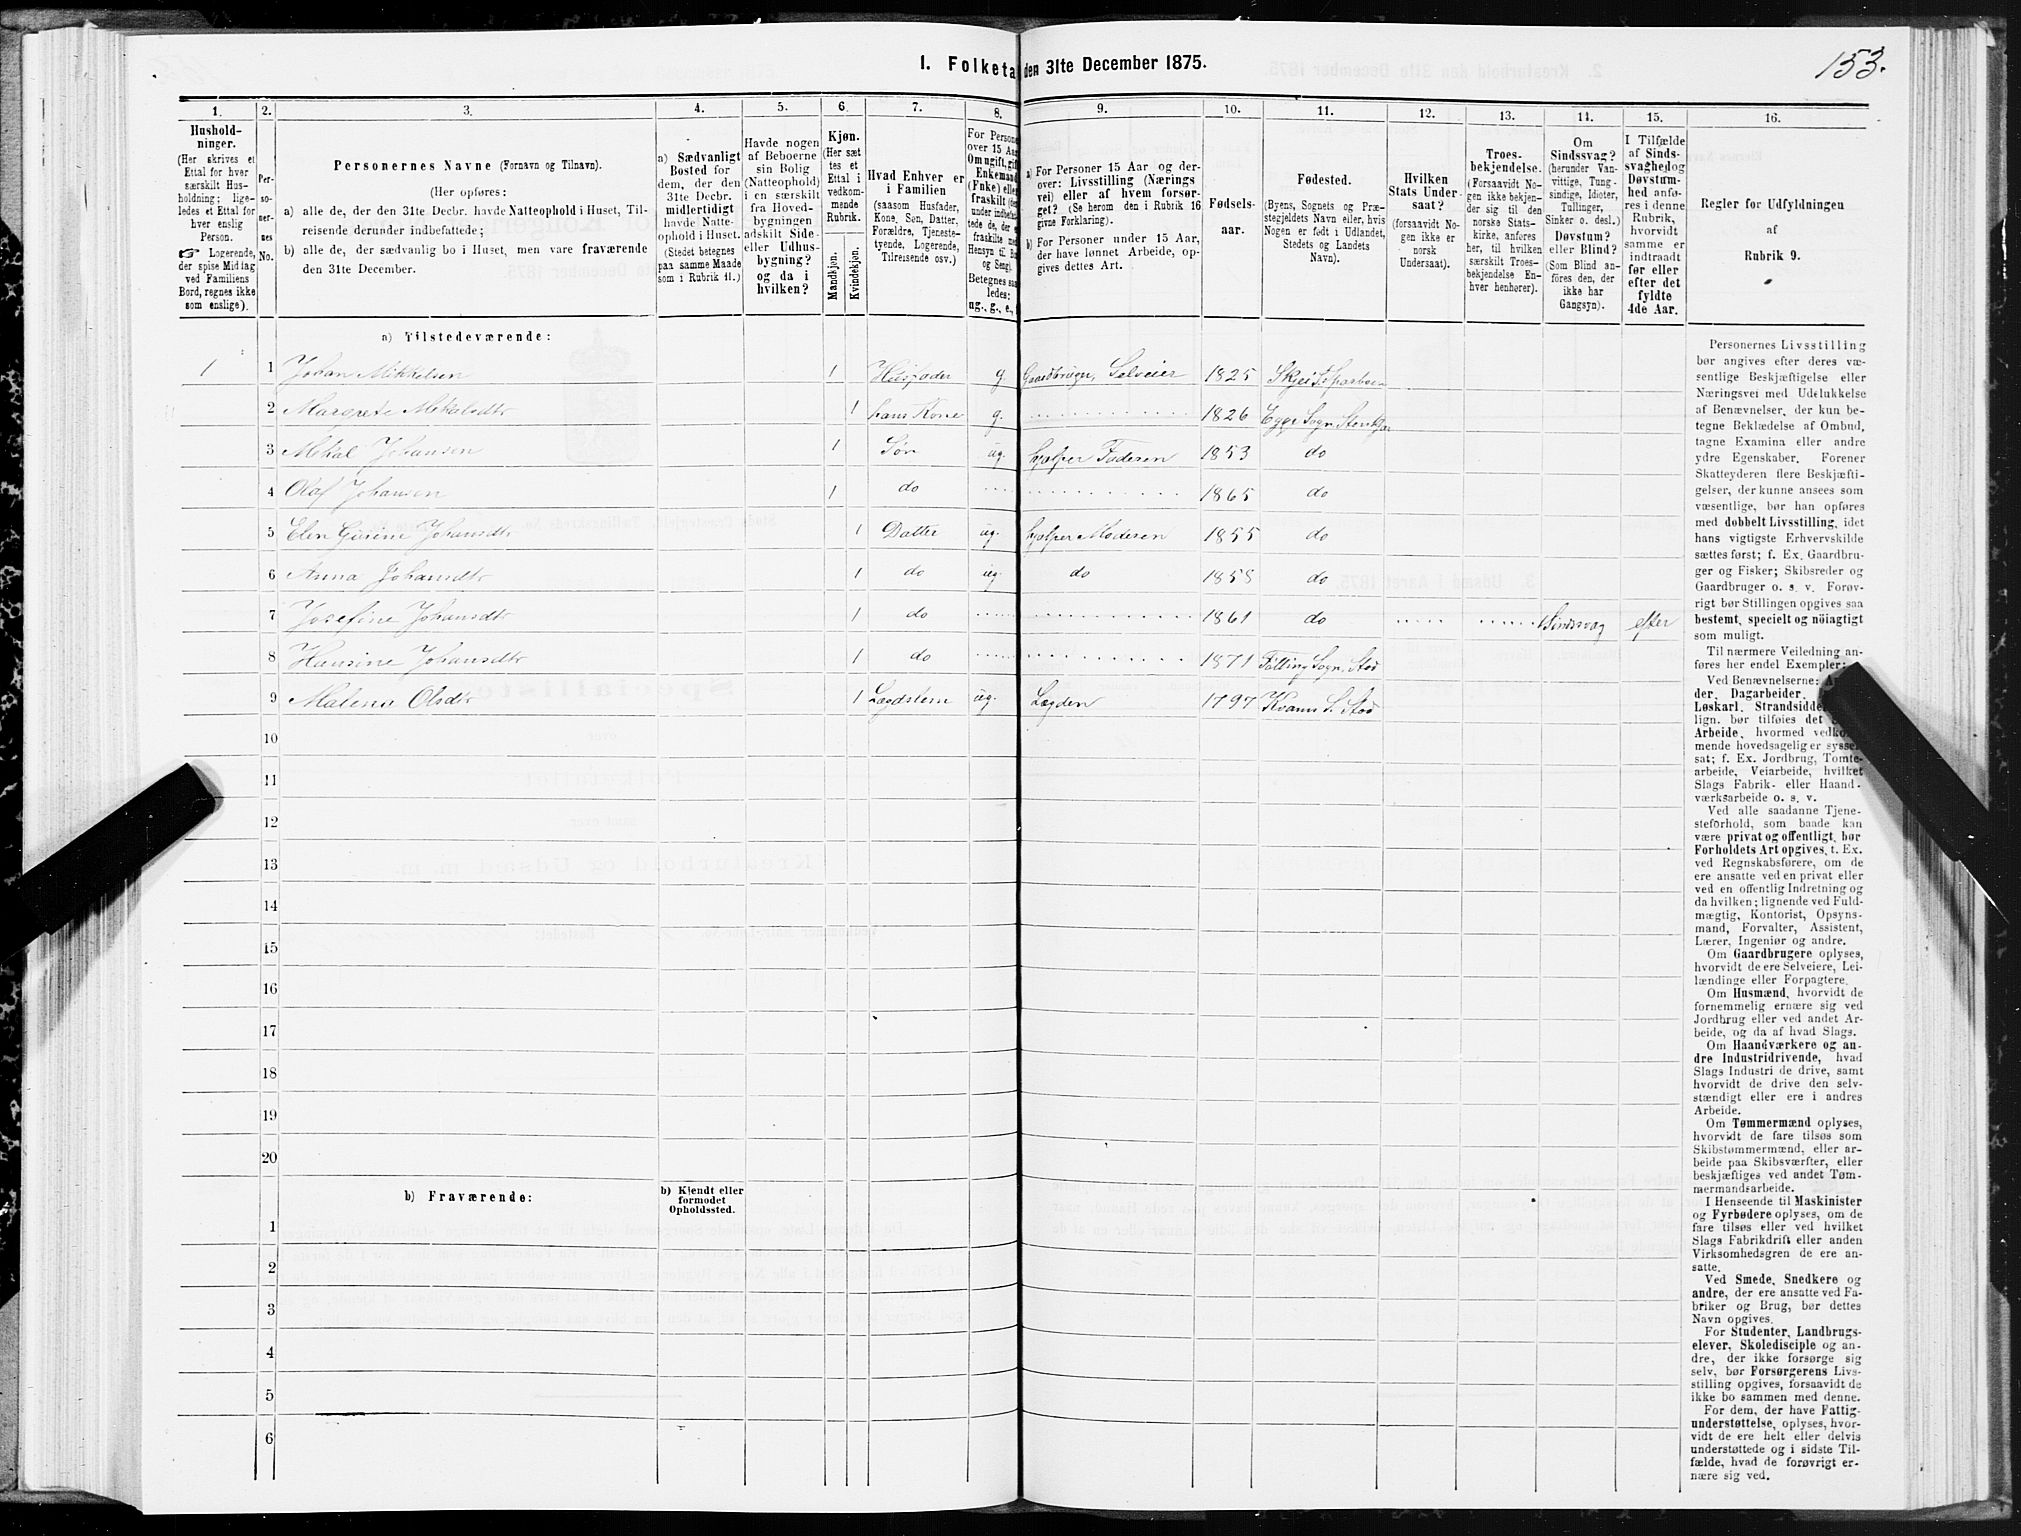 153.
I. Folketa den 31te December 1875.
1. 2. 3. 4. 5. 6. 7. 8. 9. 10. 11. 12. 13. 14. 15. 16.
Hushold-
ninger.
(Her skrives et
Ettal for hver
særskilt Hus-
holdning; lige-
ledes et Ettal for
hver enslig
Person.
☞ Logerende,
der spise Middag
ved Familiens
Bord, regnes ikke
som enslige).
Per-
so-
ner-
nes
No.
Personernes Navne (Fornavn og Tilnavn).
(Her opføres:
a) alle de, der den 31te Decbr. havde Natteophold i Huset, Til-
reisende derunder indbefattede;
b) alle de, der sædvanlig bo i Huset, men vare fraværende
den 31te December.
a) Sædvanligt
Bosted for
dem, der den
31te Decbr.
midlertidigt
havde Natte-
ophold i Huset.
(Stedet betegnes
paa samme Maade
som i Rubrik 11.)
Havde nogen
af Beboerne
sin Bolig
(Natteophold)
i en særskilt
fra Hoved-
bygningen
adskilt Side-
eller Udhus-
bygning?
og da i
hvilken?
Kjøn.
(Her sæt
tes et
Ettal i
vedkom-
mende
Rubrik.
Mandkjøn.
Kvindekjøn.
Hvad Enhver er
i Familien
(saasom Husfader,
Kone, Søn, Datter,
Forældre, Tjeneste-
tyende, Logerende,
Tilreisende osv.)
For Persone
over 15 Aar
Om ugift, gift
Enkemand
(Fnke) eller
fraskilt (der
under indbefat
tede de, der e
fraskilte med
Hensyn til Bo
og Seng).
Betegnes saa
ledes:
ug., g., e.,
a) For Personer 15 Aar og der-
over: Livsstilling (Nærings
vei) eller af hvem forsør-
get? (Se herom den i Rubrik 16
givne Forklaring).
b) For Personer under 15 Aar,
der have lønnet Arbeide, op-
gives dettes Art.
Fødsels-
aar.
Fødested.
(Byens, Sognets og Præ-
stegjeldets Navn eller, hvis
Nogen er født i Udlandet,
Stedets og Landets
Navn).
Hvilken
Stats Under-
saat?
(forsaavidt No-
gen ikke er
norsk
Undersaat).
Troes-
bekjendelse.
(Forsaavidt No-
gen ikke bekjen-
der sig til den
norske Stats-
kirke, anføres
her, til hvilken
særskilt Troes-
bekjendelse En-
hver henhører).
Om
Sindssvag?
(herunder Van-
vittige, Tung-
sindige, Idioter,
Tullinger,
Sinker o. desl.)
Døvstum?
eller Blind?
(Som Blind an-
føres den, der
ikke har
Gangsyn).
I Tilfælde
af Sinds-
svaghedog
Døvstum-
hed anfø-
res i denne
Rubrik,
hvorvidt
samme er
indtraadt
før eller
efter det
fyldte
4de Aar.
Regler for Udfyldningen
af
Rubrik 9.
a) Tilstedeværende:
1 1 Johan Mikkelsen 1 Husfader g. Gaardbruger, Selveier 1825 Skjei S. Sparboen
2 Margrete Mekalsdtr 1 hans Kone g. 1826 Egge Sogn Stenkjær
3 Mekal Johansen 1 Søn ug. hjelper Faderen 1853 do
4 Olaf Johansen 1 do 1865 do
5 Elen Gurine Johansdtr 1 Datter ug. hjelper Moderen 1855 do
6 Anna Johansdtr 1 do ug. do 1858 do
7 Josefine Johansdtr 1 do 1861 do Sindssvag efter
8 Hansine Johansdtr 1 do 1871 Følling Sogn, Stod
9 Malena Olsdtr 1 Lægdslem ug. Lægden 1797 Kvam S. Stod
10
11
12
13
14
15
16
17
18
19
20
b) Fraværende:
b) Kjendt eller
formodet
Opholdssted.
1
2
3
4
5
6
Personernes Livsstilling
bør angives efter deres væ-
sentlige Beskjæftigelse eller
Næringsvei med Udelukkelse
af Benævnelser, der kun be-
tegne Beklædelse af Ombud,
tagne Examina eller andre
ydre Egenskaber. Forener
Skatteyderen flere Beskjæfti-
gelser, der kunne ansees som
væsentlige, bør han opføres
med dobbelt Livsstilling, idet
hans vigtigste Erhvervskilde
sættes først; f. Ex. Gaardbru-
ger og Fisker; Skibsreder og
Gaardbruger o. s. v. Forøv-
rigt bør Stillingen opgives saa
bestemt, specielt og nöiagtigt
som muligt.
Til nærmere Veiledning an-
føres her endel Exempler:
Ved Benævnelserne:
der, Dagarbeider,
Løskarl, Strandsidder
lign. bør tilføies det
Arbeide, hvormed vedkom-
mende hovedsagelig er syssel
sat; f. Ex. Jordbrug, Tomte-
arbeide, Veiarbeide, hvilket
Slags Fabrik- eller Haand-
værksarbeide o. s. v.
Ved alle saadanne Tjene-
steforhold, som baade kan
være privat og offentligt, bør
Forholdets Art opgives, t. Ex.
ved Regnskabsførere, om de
ere ansatte ved en privat eller
ved en offentlig Indretning og
da hvilken; lignende ved Fuld-
mægtig, Kontorist, Opsyns-
mand, Forvalter, Assistent,
Lærer, Ingeniør og andre.
Om Gaardbrugere oplyses,
hvorvidt de ere Selveiere, Lei-
lændinge eller Forpagtere.
Om Husmænd, hvorvidt de
fornemmelig ernære sig ved
Jordbrug eller ved andet Ar-
beide, og da af hvad Slags.
Om Haandværkere og an-
dre Industridrivende, hvad
Slags Industri de drive, samt
hvorvidt de drive den selv-
stændigt eller ere i andres
Arbeide.
Om Tømmermænd oplyses,
hvorvidt de fare tilsøs som
Skibstømmermænd, eller ar-
beide paa Skibsværfter, eller
beskjæftiges ved andet Tøm-
mermandsarbeide.
I Henseende til Maskinister
og Fyrbødere oplyses, om de
fare tilsøs eller ved hvilket
Slags Fabrikdrift eller anden
Virksomhedsgren de ere an-
satte.
Ved Smede, Snedkere og
andre, der ere ansatte ved Fa-
briker og Brug, bør dettes
Navn opgives.
For Studenter, Landbrugs-
elever, Skoledisciple og an-
dre, der ikke forsørge sig
selv, bør Forsørgerens Livs-
stilling opgives, forsaavidt de
ikke bo sammen med denne.
For dem, der have Fattig-
understøttelse, oplyses, hvor-
vidt de ere helt eller delvis
understøttede og i sidste Til-
fælde, hvad de forøvrigt er-
nære sig ved.